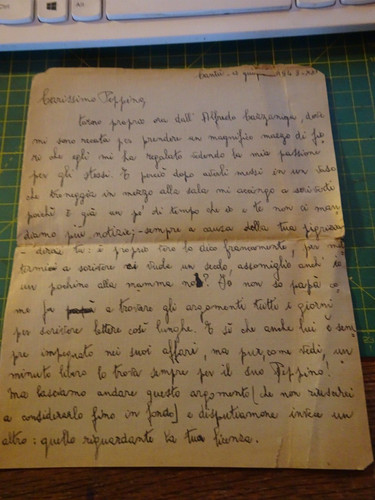 Cantù - 4 giugno 1943-XXI
Carissimo Peppino,
torno proprio ora dall'Alfredo Cazzaniga, dove
mi sono recata per prendere un magnifico mazzo di fio=
ri che egli mi ha regalato vedendo la mia passione
per gli stessi. E perciò dopo averli messi in un vaso
che troneggia in mezzo alla sala mi accingo a scriverti
poichè è già un po' di tempo che io e te non ci man=
diamo più notizie; - sempre a causa della tua pigrizia
- dirai tu: è proprio vero lo dico francamente, per me
termini a scrivere ci vuole un secolo, assomiglio anch'io
un pochino alla mamma no? Io non so papà co=
me fa a trovare gli argomenti tutti i giorni
per scrivere lettere così lunghe. E sì che anche lui è sem=
pre impegnato nei suoi affari, ma pur, come vedi, un
minuto libero lo trova sempre per il suo Peppino!
Ma lasciamo andare questo argomento (che non riuscirei
a considerarlo fino in fondo) e disputiamone invece un
altro: quello riguardante la tua licenza.